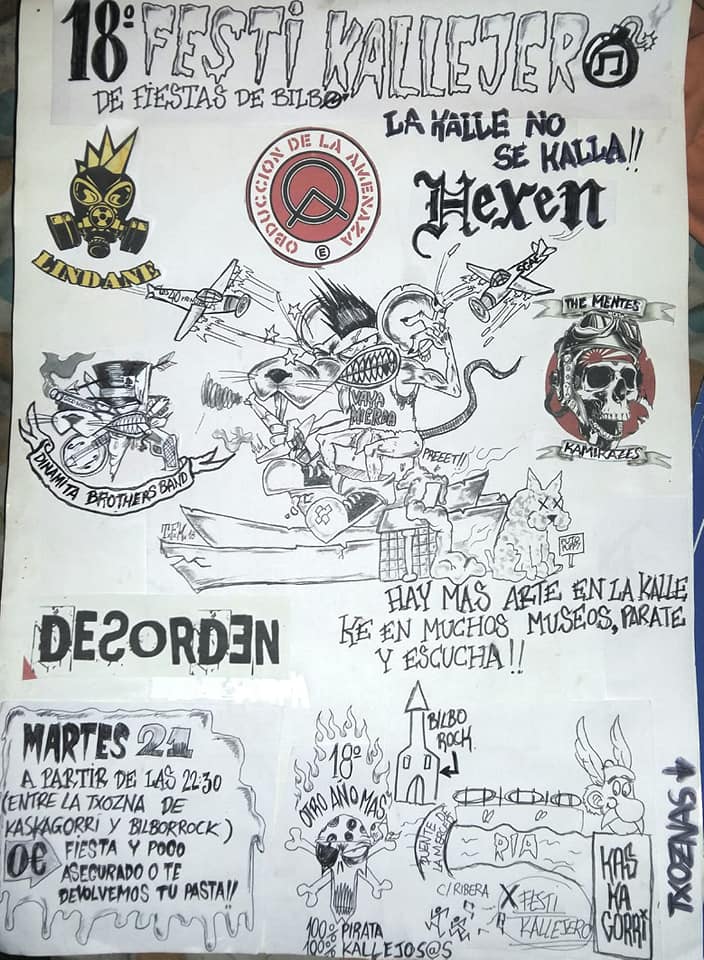 18º FESTI KALLEJERO
DE FIESTAS DE BILBO
LA KALLE NO
SE KALLA!!
LINDANE
OBDUCCION DE LA AMENAZA
E
Hexen
LOS 40
SGAE
THE MENTES
KAMIKAZES
VAYA
MIERDA
DINAMITA BROTHERS BAND
PREEET!!
PUTO
PUPPY
HAY MAS ARTE EN LA KALLE
KE EN MUCHOS MUSEOS, PARATE
Y ESCUCHA!!
DESORDEN
MARTES 21
A PARTIR DE LAS 22:30
(ENTRE LA TXOZNA DE
KASKAGORRI Y BILBORROCK)
0€ FIESTA Y POGO
ASEGURADO O TE
DEVOLVEMOS TU PASTA!!
18º
OTRO AÑO MAS
100% PIRATA
100% KALLEJOS@S
BILBO
ROCK
PUENTE DE
LA MERCED
RIA
C/RIBERA
X FESTI
KALLEJERO
KAS
KA
GORRI
TXOZNAS